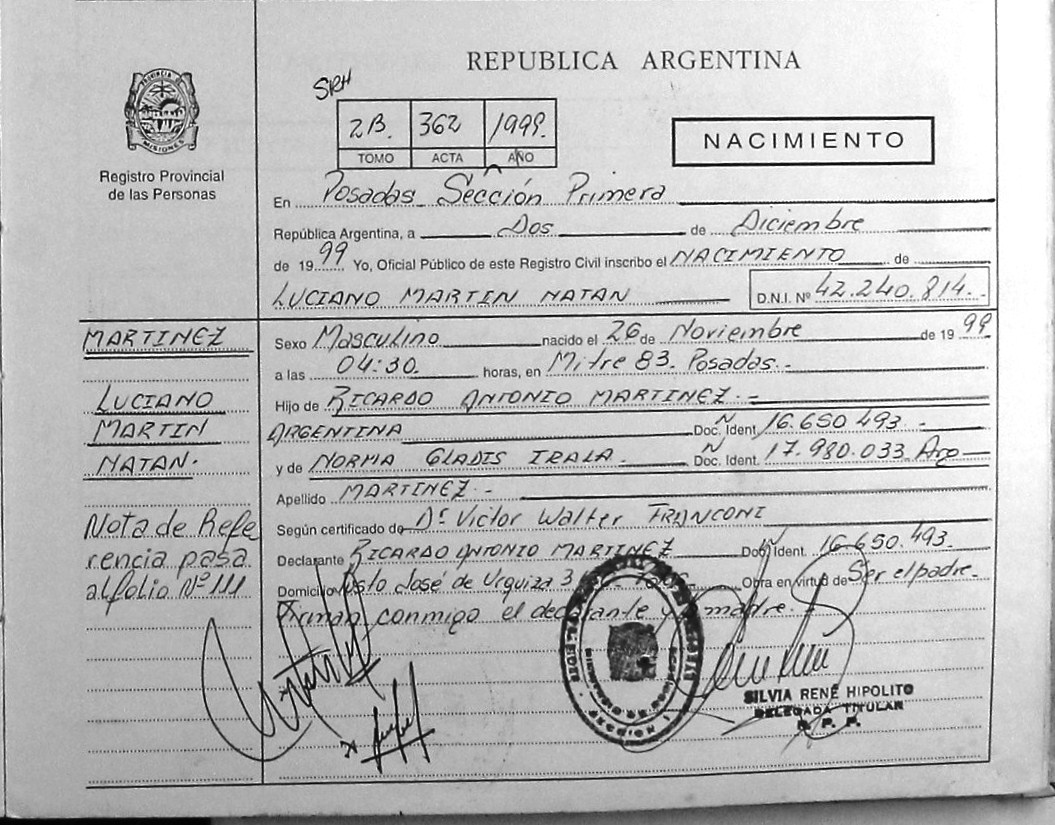 REPUBLICA ARGENTINA
PROVINCIA DE MISIONES
Registro Provincial
de las Personas
SRH
2B. 362 1999.
TOMO ACTA AÑO
NACIMIENTO
En Posadas Sección Primera
República Argentina, a Dos de Diciembre
de 1999 Yo, Oficial Público de este Registro Civil inscribo el NACIMIENTO de
LUCIANO MARTIN NATAN D.N.I. Nº 42.240.814.-
MARTINEZ
LUCIANO
MARTIN
NATAN.
Sexo Masculino nacido el 26 de Noviembre de 1999
a las 04:30. horas, en Mitre 83. Posadas.-
Hijo de RICARDO ANTONIO MARTINEZ.-
ARGENTINA Doc. Ident. Nº 16.650.493.-
y de NORMA GLADIS IRALA. Doc. Ident. Nº 17.980.033 Arg
Apellido MARTINEZ.-
Según certificado de Dr. Victor Walter FRANCONI
Declarante RICARDO ANTONIO MARTINEZ Doc. Ident. Nº 16.650.493.
Domicilio Justo José de Urquiza 3 Obra en virtud de Ser el padre.-
Firman conmigo el declarante y madre.-
Nota de Refe
rencia pasa
al folio Nº 111
SECCION 1
SILVIA RENÉ HIPOLITO
DELEGADA TITULAR
R. P. P.